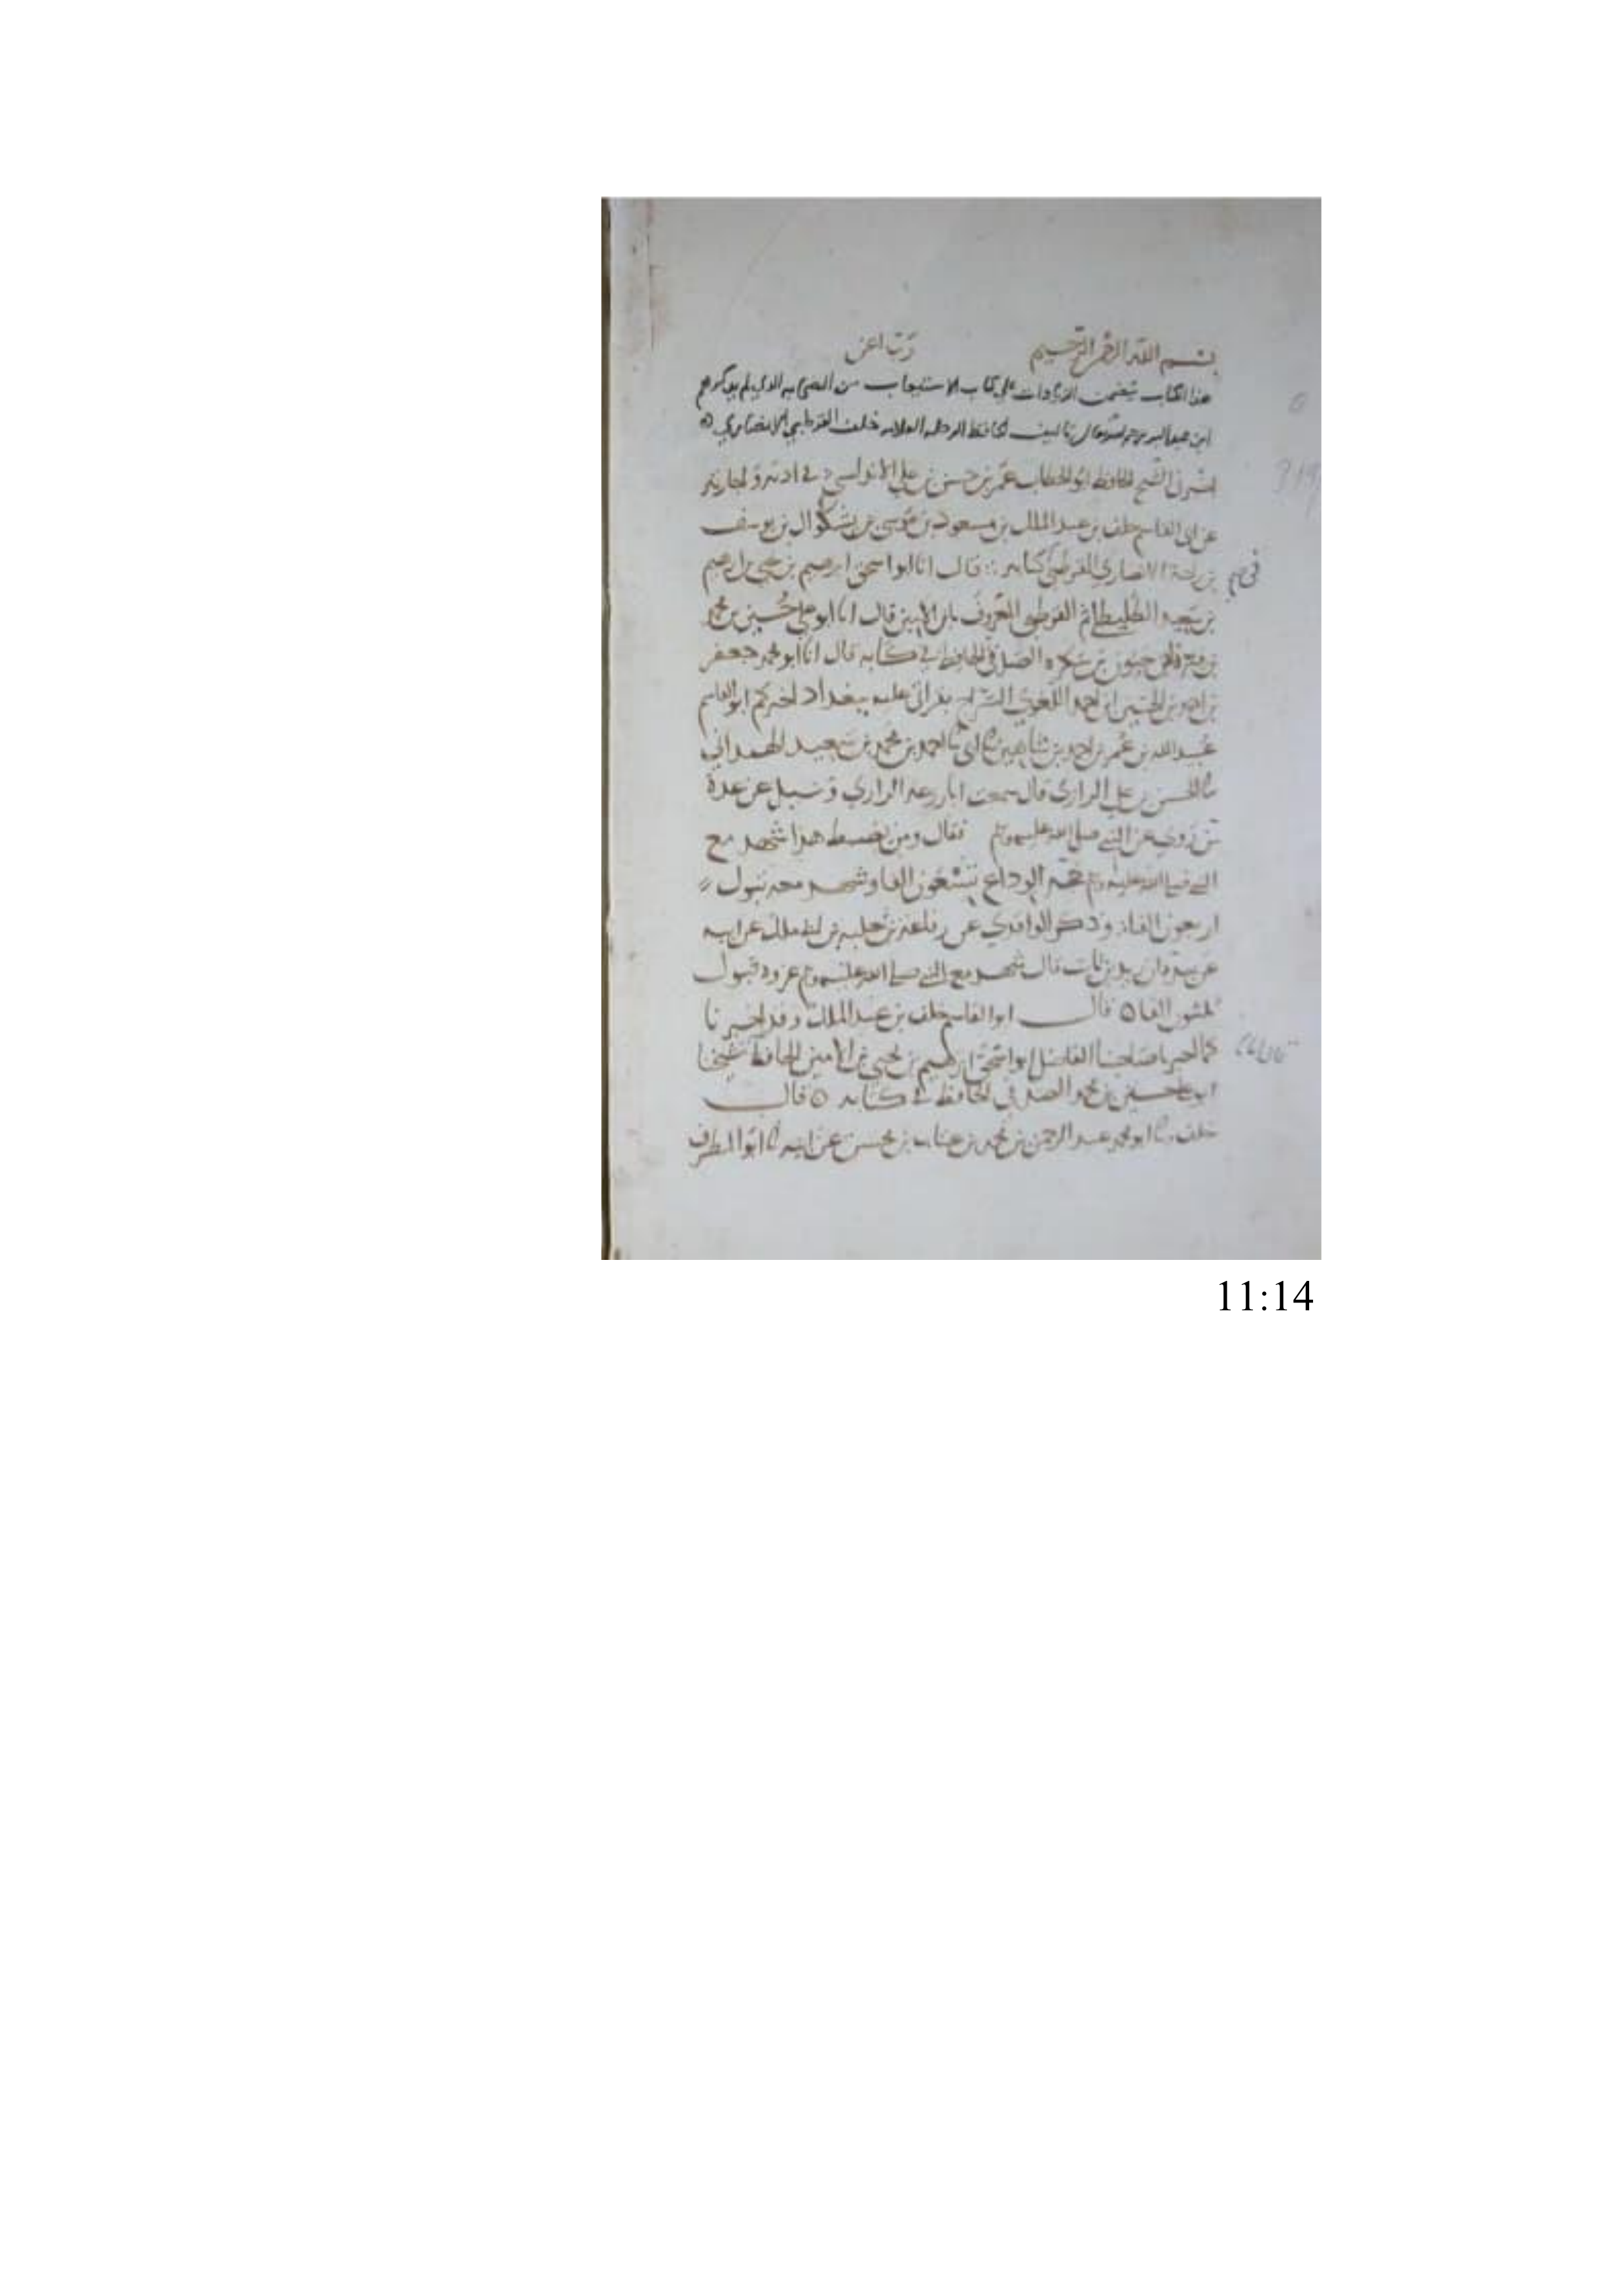 بسم الله الرحمن الرحيم رب اعن
هذا الكتاب يتضمن الزيادات على كتاب الاستيعاب من الصحابه الذي لم يذكرهم
ابن عبد البر تاليف الحافظ الرحله العلامه خلف القرطبي الانصاري
الشيخ الحافظ ابو الخطاب عمر بن حسن بن علي الاندلسي في
عن ابى القاسم خلف بن عبد الملك بن مسعود بن موسى بن بشكوال بن يوسف
بن الانصاري القرطبي قال انا ابو اسحق ابرهيم بن يحيى بن ابرهيم
بن سعيد القرطبى المعروف بابن الامين قال انا ابو علي حسين بن محمد
بن حيون بن سكره الصدفي الحافظ في كتابه قال انا ابو محمد جعفر
بن احمد بن الحسين ابن احمد اللغوي السراج عليه ببغداد اخبركم ابو القاسم
عبيد الله بن عمر بن احمد بن شاهين احمد بن محمد بن سعيد الهمداني
الحسن بن علي الرازي قال سمعت ابا زرعه الرازي وسيل عن عدة
من روي عن النبي صلى الله عليه وسلم فقال ومن يضبط هذا شهد مع
النبي صلى الله عليه وسلم حجة الوداع الفا وشهد معه تبوك
اربعون الفا وذكر الواقدي عن بن مالك عن ابيه
عن بن ثابت قال شهد مع النبي صلى الله عليه وسلم غزوة تبوك
ثلثون الفا قال ابو القاسم خلف بن عبد الملك وقد اخبرنا
صاحبنا الفاضل ابو اسحق ابرهيم بن يحيى بن الامين الحافظ شيخنا
ابو علي حسين بن محمد الصدفي الحافظ في كتابه قال
خلف ابو محمد عبد الرحمن بن محمد بن عتاب بن محسن عن ابيه ابو المطرف
11:14